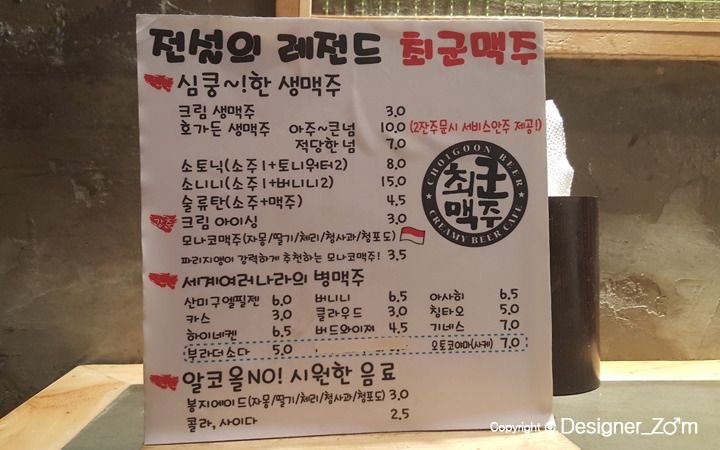 전설의 레전드 최군맥주
심쿵~!한 생맥주
크림 생맥주 3.0
호가든 생맥주 아주~큰넘 10.0 (2잔주문시 서비스안주 제공!)
적당한넘 7.0
소토닉(소주1+토니워터2) 8.0
소니니(소주1+버니니2) 15.0
술류탄(소주+맥주) 4.5
강추 크림 아이싱 3.0
모나코맥주(자몽/딸기/체리/청사과/청포도)
파리지앵이 강력하게 추천하는 모나코맥주! 3.5
CHOIGOON BEER
최군맥주
CREAMY BEER CAFE
세계여러나라의 병맥주
산미구엘필젠 6.0 버니니 6.5 아사히 6.5
카스 3.0 클라우드 3.0 칭타오 5.0
하이네켄 6.5 버드와이져 4.5 기네스 7.0
부라더소다 5.0 오토코야마(사케) 7.0
알코올NO! 시원한 음료
봉지에이드(자몽/딸기/체리/청사과/청포도) 3.0
콜라, 사이다 2.5
Copyright © Designer_Zo♂m